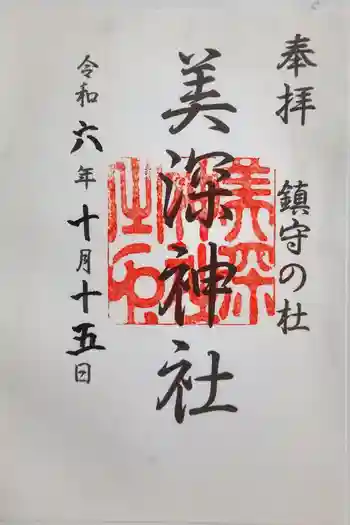 奉拝
鎮守の杜
美深神社
令和六年十月十五日
美深神社之印